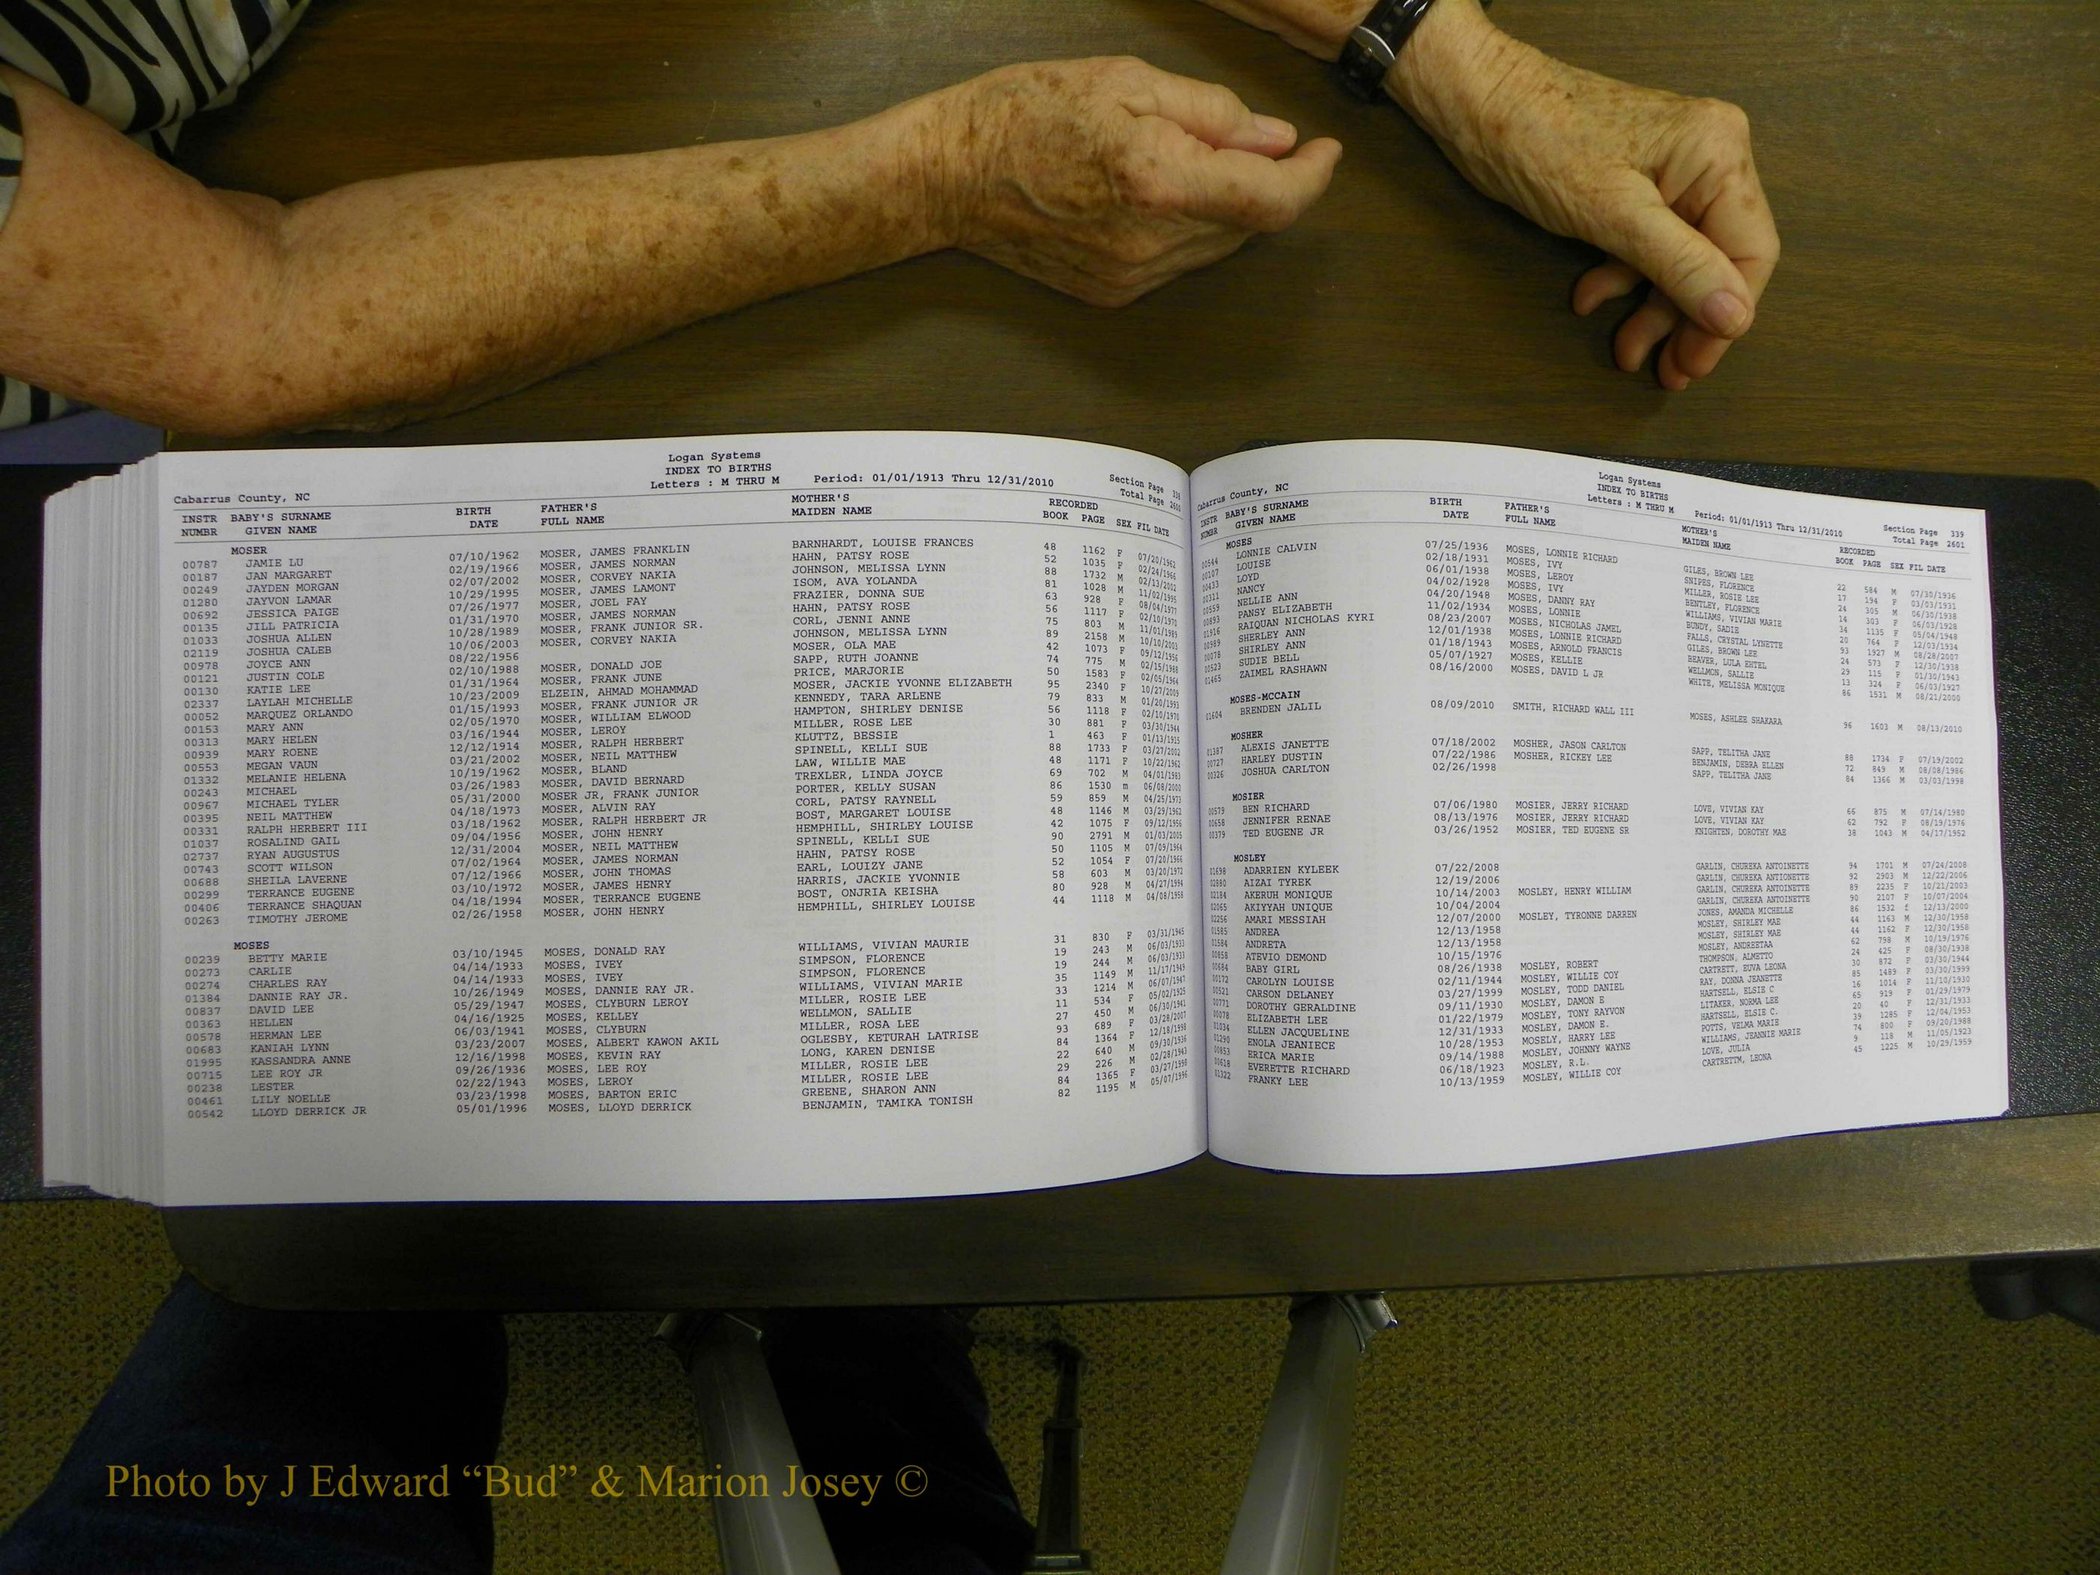 Logan Systems
INDEX TO BIRTHS
Letters : M THRU M Period: 01/01/1913 Thru 12/31/2010
Section Page 338
Total Page 2600
Cabarrus County, NC
INSTR BABY'S SURNAME BIRTH FATHER'S MOTHER'S RECORDED
NUMBR GIVEN NAME DATE FULL NAME MAIDEN NAME BOOK PAGE SEX FIL DATE
MOSER
00787 JAMIE LU 07/10/1962 MOSER, JAMES FRANKLIN BARNHARDT, LOUISE FRANCES 48 1162 F 07/20/1962
00187 JAN MARGARET 02/19/1966 MOSER, JAMES NORMAN HAHN, PATSY ROSE 52 1035 F 02/24/1966
00249 JAYDEN MORGAN 02/07/2002 MOSER, CORVEY NAKIA JOHNSON, MELISSA LYNN 88 1732 M 02/13/2002
01280 JAYVON LAMAR 10/29/1995 MOSER, JAMES LAMONT ISOM, AVA YOLANDA 81 1028 M 11/02/1995
00692 JESSICA PAIGE 07/26/1977 MOSER, JOEL FAY FRAZIER, DONNA SUE 63 928 F 08/04/1977
00135 JILL PATRICIA 01/31/1970 MOSER, JAMES NORMAN HAHN, PATSY ROSE 56 1117 F 02/10/1970
01033 JOSHUA ALLEN 10/28/1989 MOSER, FRANK JUNIOR SR. CORL, JENNI ANNE 75 803 M 11/01/1989
02119 JOSHUA CALEB 10/06/2003 MOSER, CORVEY NAKIA JOHNSON, MELISSA LYNN 89 2158 M 10/10/2003
00978 JOYCE ANN 08/22/1956 MOSER, OLA MAE 42 1073 F 09/12/1956
00121 JUSTIN COLE 02/10/1988 MOSER, DONALD JOE SAPP, RUTH JOANNE 74 775 M 02/15/1988
00130 KATIE LEE 01/31/1964 MOSER, FRANK JUNE PRICE, MARJORIE 50 1583 F 02/05/1964
02337 LAYLAH MICHELLE 10/23/2009 ELZEIN, AHMAD MOHAMMAD MOSER, JACKIE YVONNE ELIZABETH 95 2340 F 10/27/2009
00052 MARQUEZ ORLANDO 01/15/1993 MOSER, FRANK JUNIOR JR KENNEDY, TARA ARLENE 79 833 M 01/20/1993
00153 MARY ANN 02/05/1970 MOSER, WILLIAM ELWOOD HAMPTON, SHIRLEY DENISE 56 1118 F 02/10/1970
00313 MARY HELEN 03/16/1944 MOSER, LEROY MILLER, ROSE LEE 30 881 F 03/30/1944
00939 MARY ROENE 12/12/1914 MOSER, RALPH HERBERT KLUTTZ, BESSIE 1 463 F 01/13/1915
00553 MEGAN VAUN 03/21/2002 MOSER, NEIL MATTHEW SPINELL, KELLI SUE 88 1733 F 03/27/2002
01332 MELANIE HELENA 10/19/1962 MOSER, BLAND LAW, WILLIE MAE 48 1171 F 10/22/1962
00243 MICHAEL 03/26/1983 MOSER, DAVID BERNARD TREXLER, LINDA JOYCE 69 702 M 04/01/1983
00967 MICHAEL TYLER 05/31/2000 MOSER JR, FRANK JUNIOR PORTER, KELLY SUSAN 86 1530 m 06/08/2000
00395 NEIL MATTHEW 04/18/1973 MOSER, ALVIN RAY CORL, PATSY RAYNELL 59 859 M 04/25/1973
00331 RALPH HERBERT III 03/18/1962 MOSER, RALPH HERBERT JR BOST, MARGARET LOUISE 48 1146 M 03/29/1962
01037 ROSALIND GAIL 09/04/1956 MOSER, JOHN HENRY HEMPHILL, SHIRLEY LOUISE 42 1075 F 09/12/1956
02737 RYAN AUGUSTUS 12/31/2004 MOSER, NEIL MATTHEW SPINELL, KELLI SUE 90 2791 M 01/03/2005
00743 SCOTT WILSON 07/02/1964 MOSER, JAMES NORMAN HAHN, PATSY ROSE 50 1105 M 07/09/1964
00688 SHEILA LAVERNE 07/12/1966 MOSER, JOHN THOMAS EARL, LOUIZY JANE 52 1054 F 07/20/1966
00299 TERRANCE EUGENE 03/10/1972 MOSER, JAMES HENRY HARRIS, JACKIE YVONNIE 58 603 M 03/20/1972
00406 TERRANCE SHAQUAN 04/18/1994 MOSER, TERRANCE EUGENE BOST, ONJRIA KEISHA 80 928 M 04/27/1994
00263 TIMOTHY JEROME 02/26/1958 MOSER, JOHN HENRY HEMPHILL, SHIRLEY LOUISE 44 1118 M 04/08/1958
MOSES
00239 BETTY MARIE 03/10/1945 MOSES, DONALD RAY WILLIAMS, VIVIAN MAURIE 31 830 F 03/31/1945
00273 CARLIE 04/14/1933 MOSES, IVEY SIMPSON, FLORENCE 19 243 M 06/03/1933
00274 CHARLES RAY 04/14/1933 MOSES, IVEY SIMPSON, FLORENCE 19 244 M 06/03/1933
01384 DANNIE RAY JR. 10/26/1949 MOSES, DANNIE RAY JR. WILLIAMS, VIVIAN MARIE 35 1149 M 11/17/1949
00837 DAVID LEE 05/29/1947 MOSES, CLYBURN LEROY MILLER, ROSIE LEE 33 1214 M 06/07/1947
00363 HELLEN 04/16/1925 MOSES, KELLEY WELLMON, SALLIE 11 534 F 05/02/1925
00578 HERMAN LEE 06/03/1941 MOSES, CLYBURN MILLER, ROSA LEE 27 450 M 06/30/1941
00683 KANIAH LYNN 03/23/2007 MOSES, ALBERT KAWON AKIL OGLESBY, KETURAH LATRISE 93 689 F 03/28/2007
01995 KASSANDRA ANNE 12/16/1998 MOSES, KEVIN RAY LONG, KAREN DENISE 84 1364 F 12/18/1998
00715 LEE ROY JR 09/26/1936 MOSES, LEE ROY MILLER, ROSIE LEE 22 640 M 09/30/1936
00238 LESTER 02/22/1943 MOSES, LEROY MILLER, ROSIE LEE 29 226 M 02/28/1943
00461 LILY NOELLE 03/23/1998 MOSES, BARTON ERIC GREENE, SHARON ANN 84 1365 F 03/27/1998
00542 LLOYD DERRICK JR 05/01/1996 MOSES, LLOYD DERRICK BENJAMIN, TAMIKA TONISH 82 1195 M 05/07/1996
Logan Systems
INDEX TO BIRTHS
Letters : M THRU M Period: 01/01/1913 Thru 12/31/2010
Section Page 339
Total Page 2601
Cabarrus County, NC
INSTR BABY'S SURNAME BIRTH FATHER'S MOTHER'S RECORDED
NUMBR GIVEN NAME DATE FULL NAME MAIDEN NAME BOOK PAGE SEX FIL DATE
MOSES
00544 LONNIE CALVIN 07/25/1936 MOSES, LONNIE RICHARD GILES, BROWN LEE 22 584 M 07/30/1936
00107 LOUISE 02/18/1931 MOSES, IVY SNIPES, FLORENCE 17 194 F 03/03/1931
00433 LOYD 06/01/1938 MOSES, LEROY MILLER, ROSIE LEE 24 305 M 06/30/1938
00311 NANCY 04/02/1928 MOSES, IVY BENTLEY, FLORENCE 14 303 F 06/03/1928
00559 NELLIE ANN 04/20/1948 MOSES, DANNY RAY WILLIAMS, VIVIAN MARIE 34 1135 F 05/04/1948
00893 PANSY ELIZABETH 11/02/1934 MOSES, LONNIE BUNDY, SADIE 20 764 F 12/03/1934
01916 RAIQUAN NICHOLAS KYRI 08/23/2007 MOSES, NICHOLAS JAMEL FALLS, CRYSTAL LYNETTE 93 1927 M 08/28/2007
00989 SHERLEY ANN 12/01/1938 MOSES, LONNIE RICHARD GILES, BROWN LEE 24 573 F 12/30/1938
00078 SHIRLEY ANN 01/18/1943 MOSES, ARNOLD FRANCIS BEAVER, LULA EHTEL 29 115 F 01/30/1943
00523 SUDIE BELL 05/07/1927 MOSES, KELLIE WELLMON, SALLIE 13 324 F 06/03/1927
01465 ZAIMEL RASHAWN 08/16/2000 MOSES, DAVID L JR WHITE, MELISSA MONIQUE 86 1531 M 08/21/2000
MOSES-MCCAIN
01604 BRENDEN JALIL 08/09/2010 SMITH, RICHARD WALL III MOSES, ASHLEE SHAKARA 96 1603 M 08/13/2010
MOSHER
01387 ALEXIS JANETTE 07/18/2002 MOSHER, JASON CARLTON SAPP, TELITHA JANE 88 1734 F 07/19/2002
00727 HARLEY DUSTIN 07/22/1986 MOSHER, RICKEY LEE BENJAMIN, DEBRA ELLEN 72 849 M 08/08/1986
00326 JOSHUA CARLTON 02/26/1998 SAPP, TELITHA JANE 84 1366 M 03/03/1998
MOSIER
00579 BEN RICHARD 07/06/1980 MOSIER, JERRY RICHARD LOVE, VIVIAN KAY 66 875 M 07/14/1980
00658 JENNIFER RENAE 08/13/1976 MOSIER, JERRY RICHARD LOVE, VIVIAN KAY 62 792 F 08/19/1976
00379 TED EUGENE JR 03/26/1952 MOSIER, TED EUGENE SR KNIGHTEN, DOROTHY MAE 38 1043 M 04/17/1952
MOSLEY
01698 ADARRIEN KYLEEK 07/22/2008 GARLIN, CHUREKA ANTOINETTE 94 1701 M 07/24/2008
02890 AIZAI TYREK 12/19/2006 GARLIN, CHUREKA ANTIONETTE 92 2903 M 12/22/2006
02184 AKERUH MONIQUE 10/14/2003 MOSLEY, HENRY WILLIAM GARLIN, CHUREKA ANTOINETTE 89 2235 F 10/21/2003
02065 AKIYYAH UNIQUE 10/04/2004 GARLIN, CHUREKA ANTOINETTE 90 2107 F 10/07/2004
02256 AMARI MESSIAH 12/07/2000 MOSLEY, TYRONNE DARREN JONES, AMANDA MICHELLE 86 1532 f 12/13/2000
01585 ANDREA 12/13/1958 MOSLEY, SHIRLEY MAE 44 1163 M 12/30/1958
01584 ANDRETA 12/13/1958 MOSLEY, SHIRLEY MAE 44 1162 F 12/30/1958
00858 ATEVIO DEMOND 10/15/1976 MOSLEY, ANDREETAA 62 798 M 10/19/1976
00684 BABY GIRL 08/26/1938 MOSLEY, ROBERT THOMPSON, ALMETTO 24 425 F 08/30/1938
00172 CAROLYN LOUISE 02/11/1944 MOSLEY, WILLIE COY CARTRETT, EUVA LEONA 30 872 F 03/30/1944
00521 CARSON DELANEY 03/27/1999 MOSLEY, TODD DANIEL RAY, DONNA JEANETTE 85 1489 F 03/30/1999
00771 DOROTHY GERALDINE 09/11/1930 MOSLEY, DAMON E HARTSELL, ELSIE C 16 1014 F 11/10/1930
00078 ELIZABETH LEE 01/22/1979 MOSLEY, TONY RAYVON LITAKER, NORMA LEE 65 919 F 01/29/1979
01034 ELLEN JACQUELINE 12/31/1933 MOSLEY, DAMON E. HARTSELL, ELSIE C. 20 40 F 12/31/1933
01290 ENOLA JEANIECE 10/28/1953 MOSELY, HARRY LEE POTTS, VELMA MARIE 39 1285 F 12/04/1953
00853 ERICA MARIE 09/14/1988 MOSLEY, JOHNNY WAYNE WILLIAMS, JEANNIE MARIE 74 800 F 09/20/1988
00618 EVERETTE RICHARD 06/18/1923 MOSLEY, R.L. LOVE, JULIA 9 118 M 11/05/1923
01322 FRANKY LEE 10/13/1959 MOSLEY, WILLIE COY CARTRETTM, LEONA 45 1225 M 10/29/1959
Photo by J Edward “Bud” & Marion Josey ©